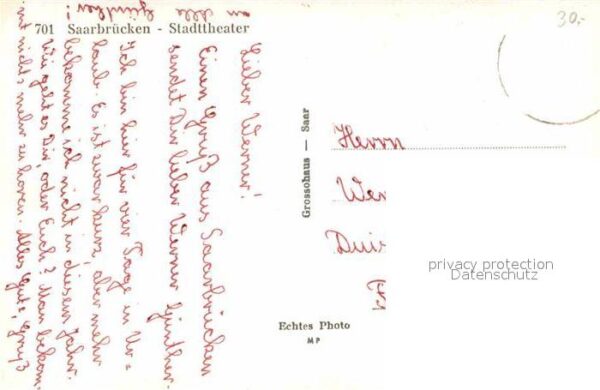 701 Saarbrücken - Stadttheater
Lieber Werner!
Einen Gruß aus Saarbrücken
sendet Dir lieber Werner Günther.
Ich bin hier für vier Tage in Ur=
laub. Es ist zwar kurz, aber mehr
bekomme ich nicht in diesem Jahr.
Wie geht es Dir, oder Euch? Man bekom
mt nichts mehr zu hören. Alles Gute, Gruß
an alle Günther!
Grossohaus — Saar
Herrn
Wer
Echtes Photo
MP
30,-
privacy protection
Datenschutz